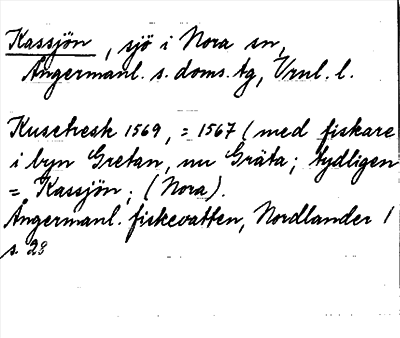 Kassjön, sjö i Nora sn,
Ångermanl. s. doms. tg, Vrnl. l.
Kusetresk 1569, = 1567 (med fiskare
i byn Gretan, nu Gräta; tydligen
= Kassjön; (Nora).
Ångermanl. fiskevatten, Nordlander 1
s. 23